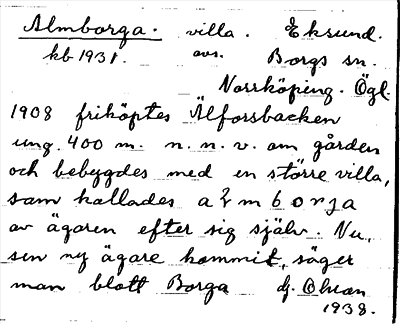 Almborga. villa. Eksund.
kb 1931. avs. Borgs sn.
Norrköping. Ögl.
1908 friköptes Älforsbacken
ung. 400 m. n. n. v. om gården
och bebyggdes med en större villa,
som kallades almborja
av ägaren efter sig själv. Nu,
sen ny ägare kommit, säger
man blott Borga dj.
1938.